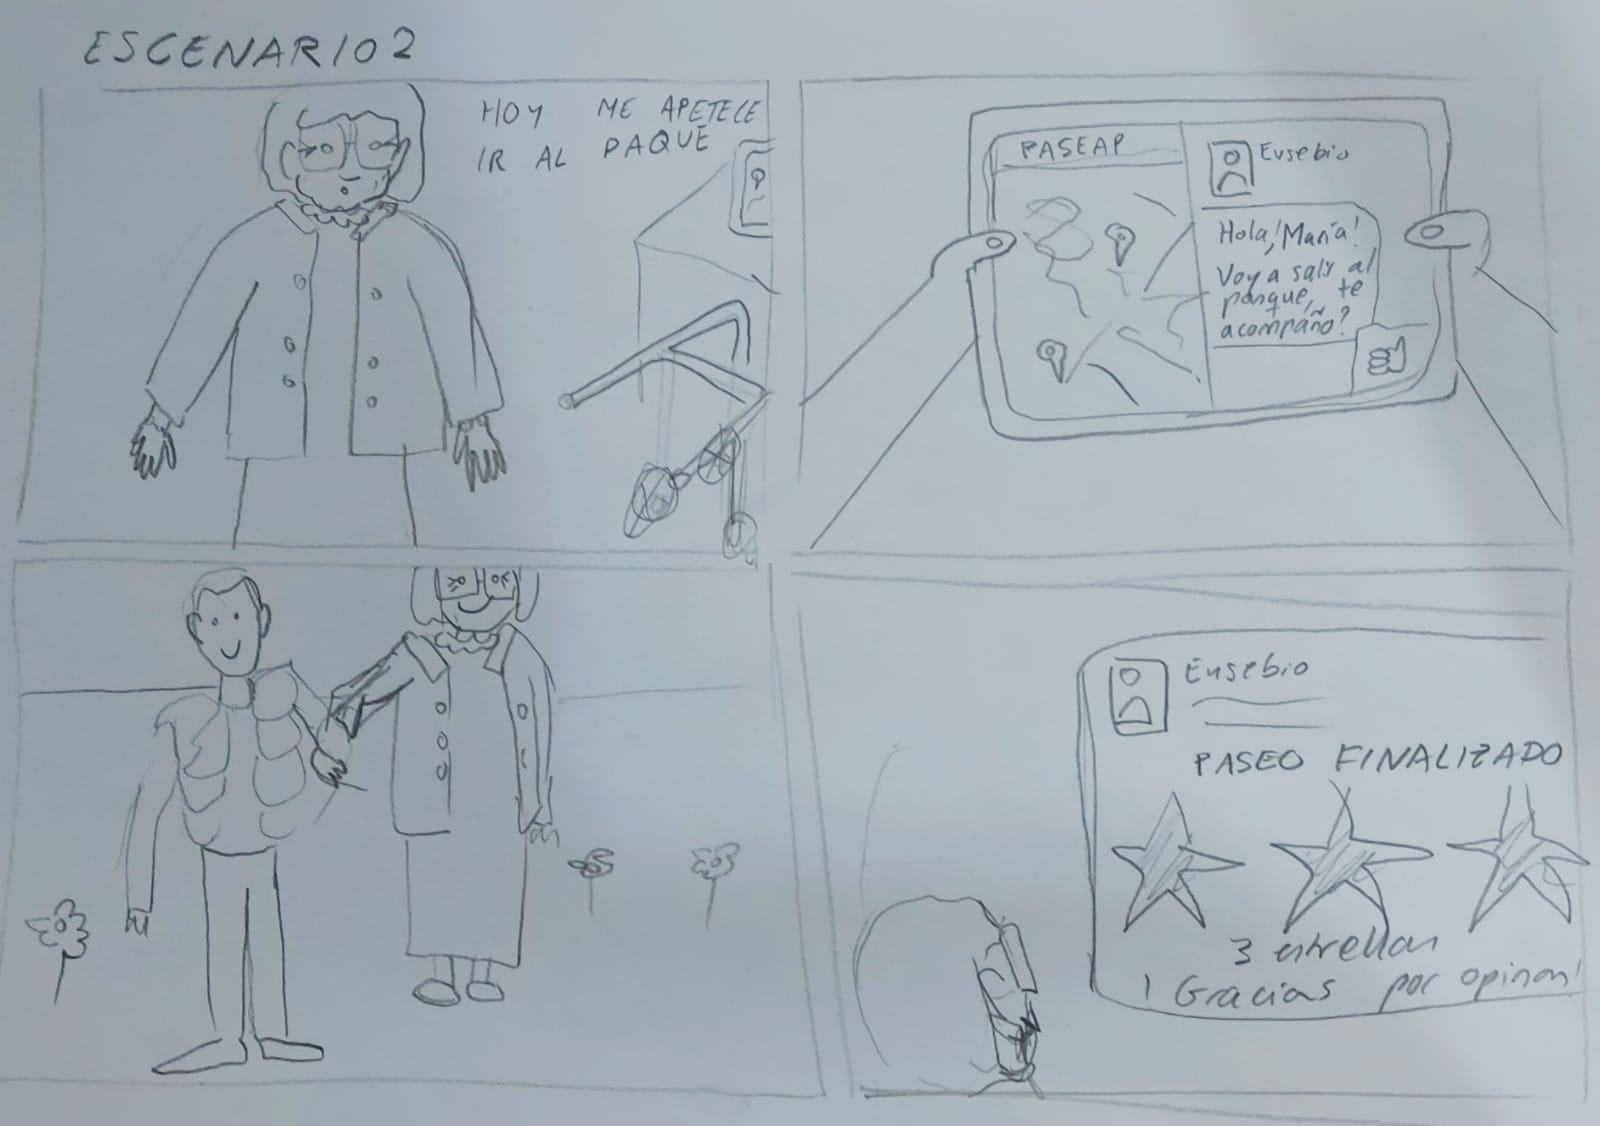 ESCENARIO 2
HOY ME APETECE
IR AL PAQUE
PASEAP
Eusebio
Hola, María!
Voy a salir al
parque, te
acompaño?
Eusebio
PASEO FINALIZADO
3 estrellas
¡Gracias por opinar!